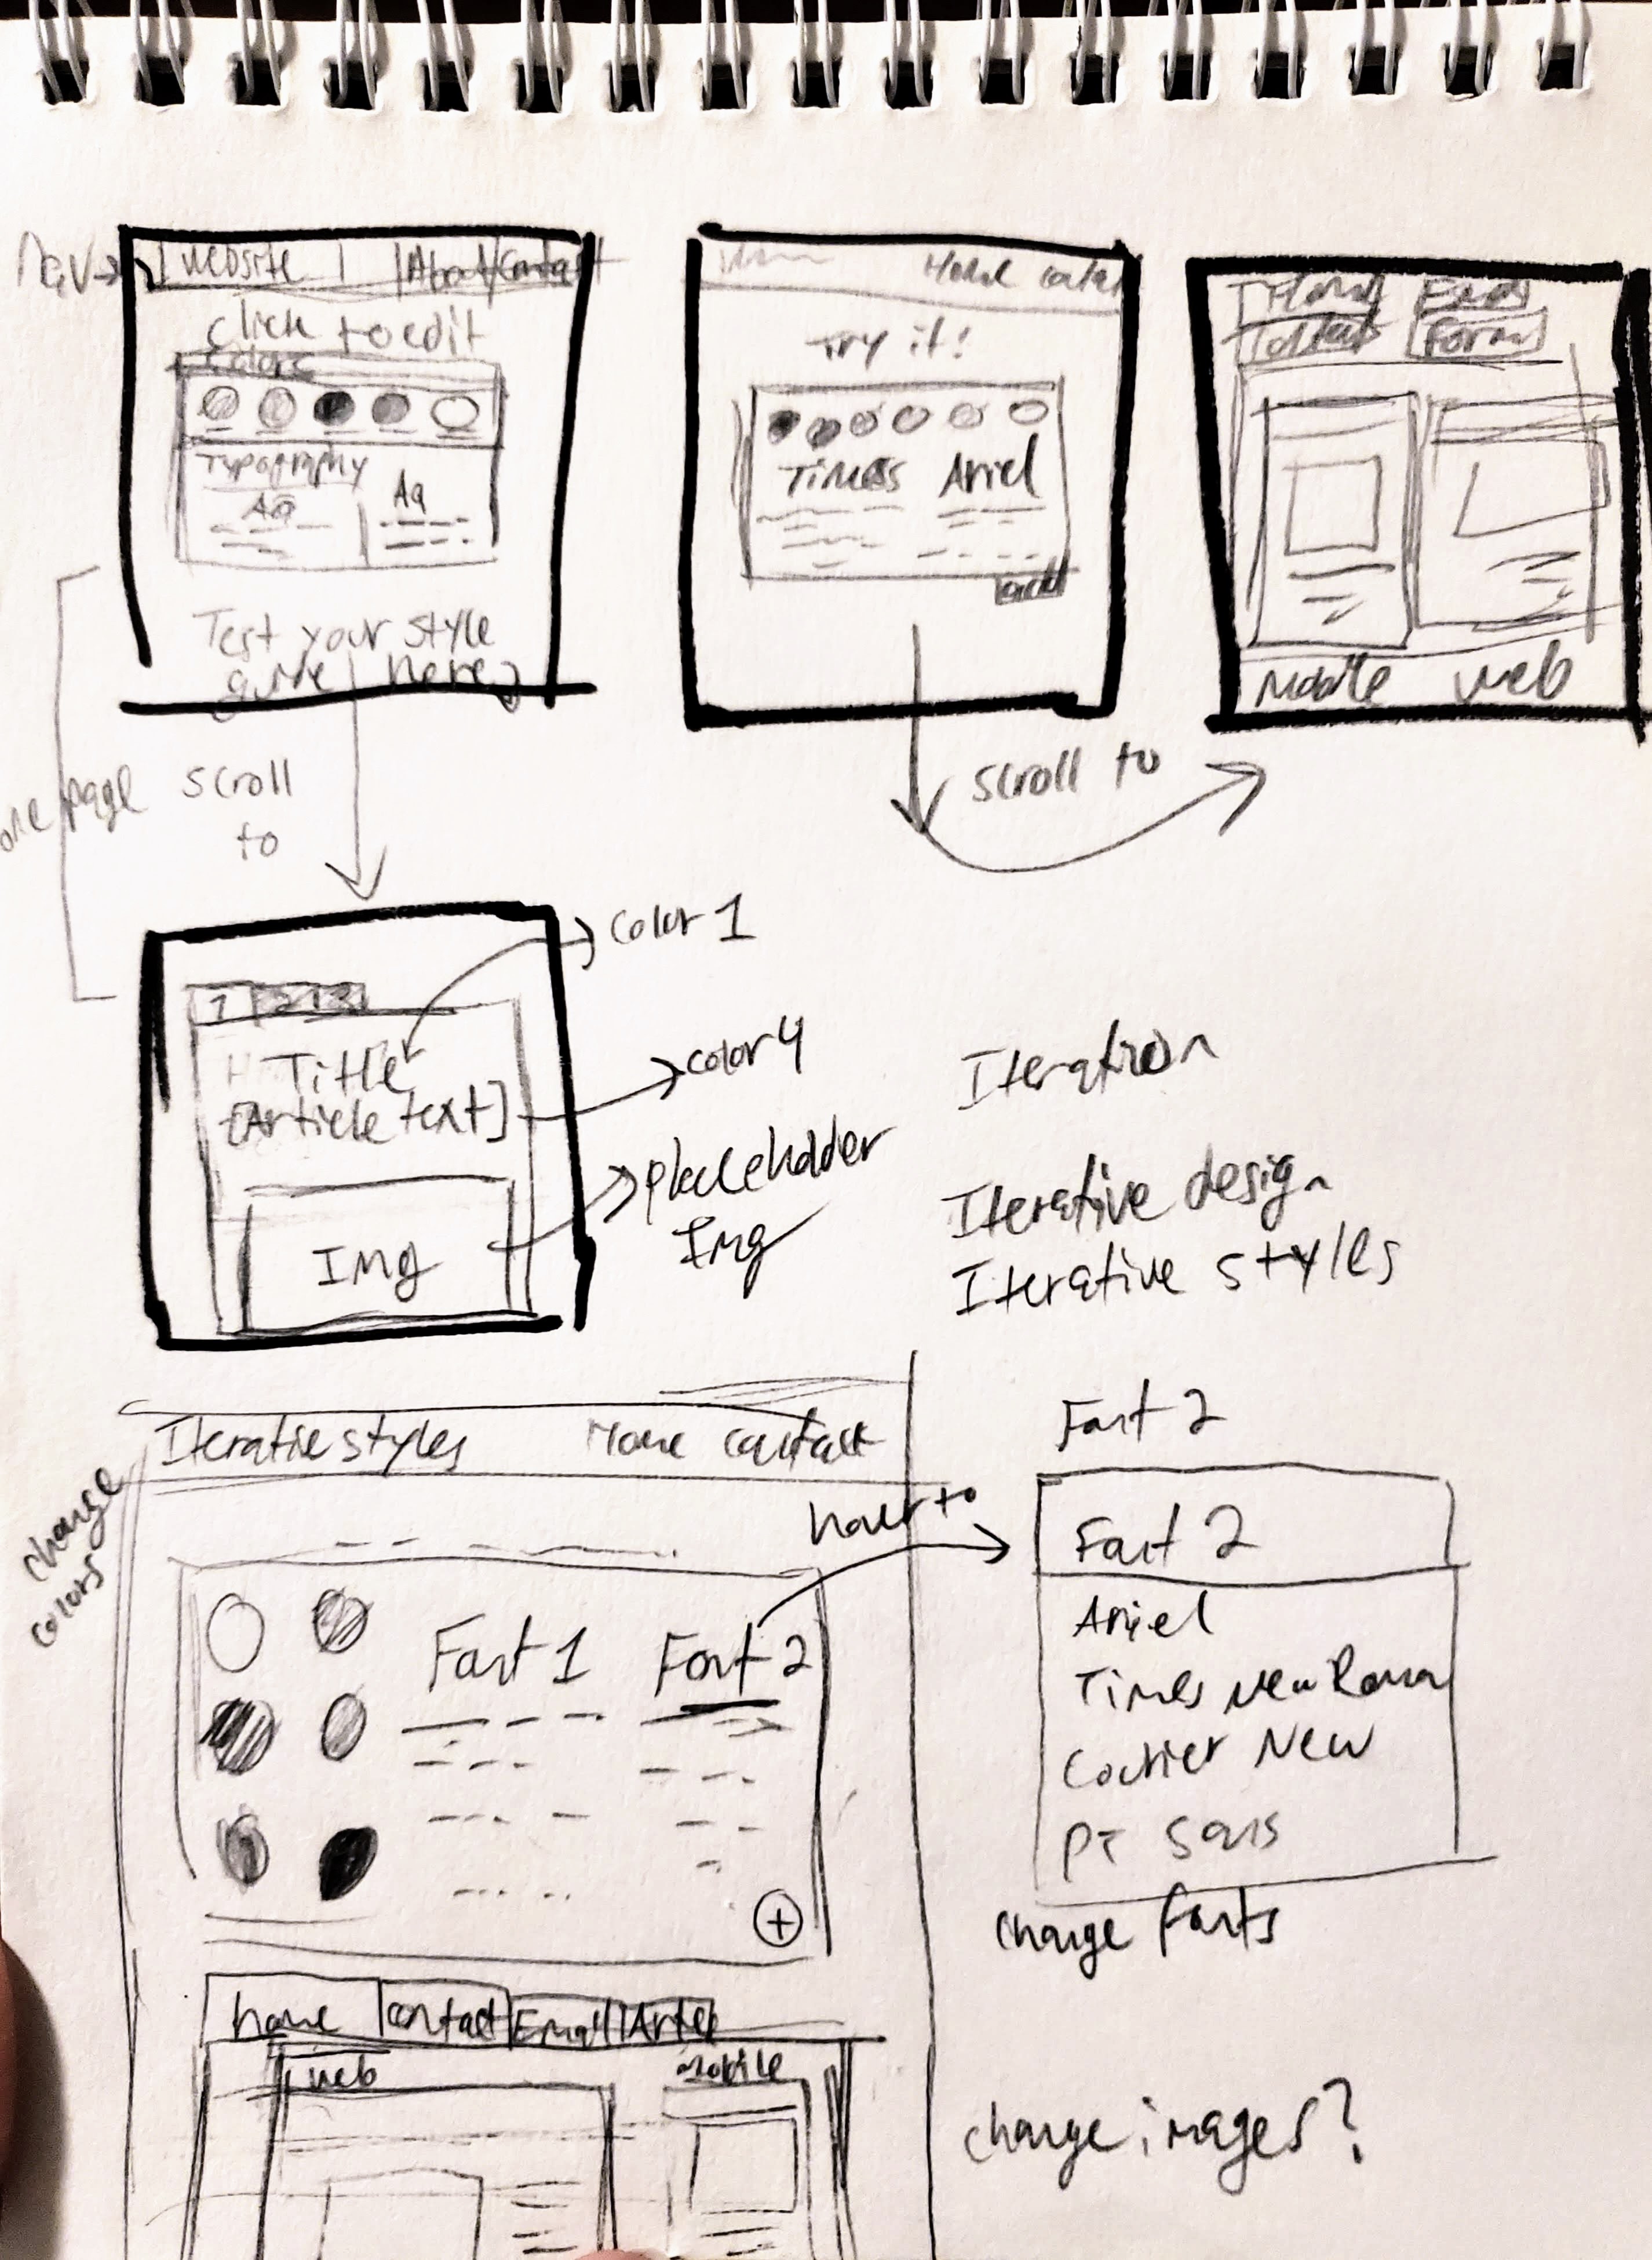 Nav
Website About Contact
click to edit
colors
Typography
Aa Aa
Test your style
guide here
one page
scroll
to
Home Contact
Try it!
Times Ariel
scroll to
Form
Mobile Web
color 1
1 2 3
Title
[Article text]
color 4
Img
placeholder
Img
Iteration
Iterative design
Iterative styles
Iterative styles Home contact
change
colors
hover to
Font 1 Font 2
+
Font 2
Font 2
Ariel
Times New Roman
Courier New
PT Sans
change fonts
home contact Email Article
web mobile
change images?